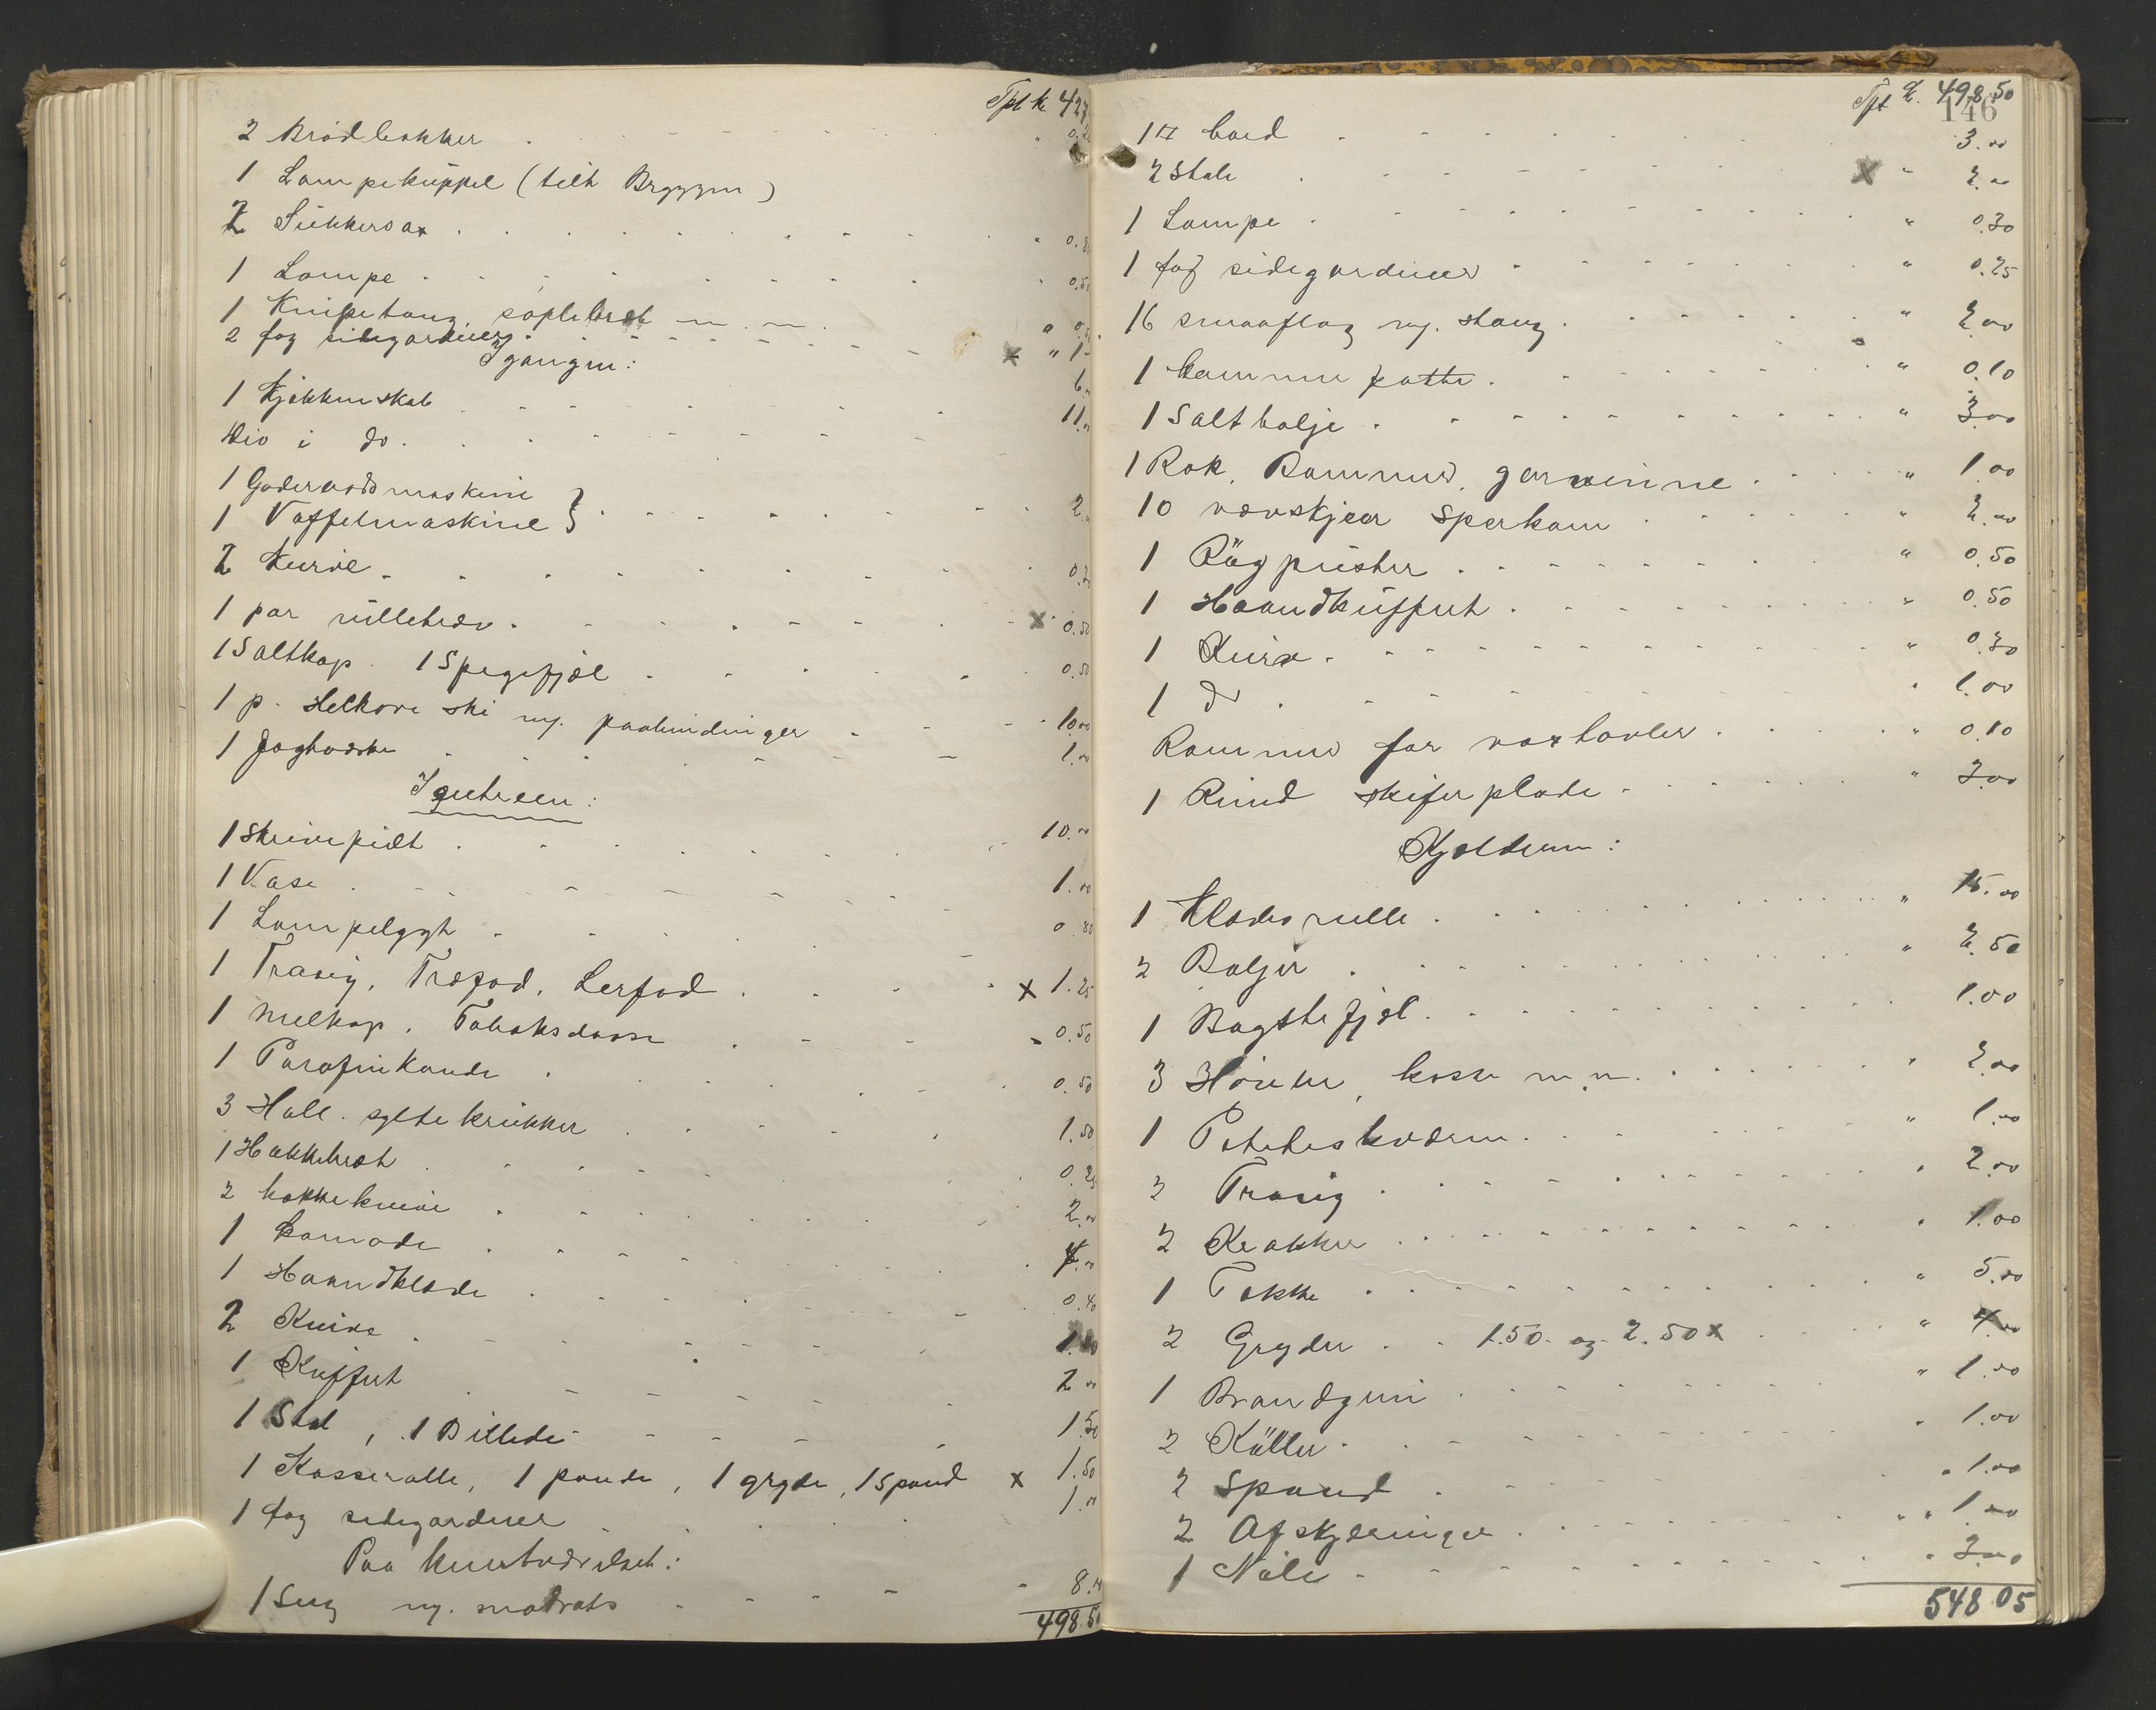 Tpt k 427
2 Brödbakker . " 0.2
1 Lampekuppel (tilh Bryggen)
2 Sukkersax . " 0.8
1 Lampe . 0.50
1 Knibetang, søplebræt m.m. " 0.
2 fag sidegardiner . x " 1-
I gangen:
1 Kjøkkenskab 6.
Div i do. 11.00
1 Goderaadsmaskine }
1 Vaffelmaskine } 2.
2 Kurve . 0.2
1 par rulletræv . x " 0.50
1 Saltkop. 1 Spegefjæl . 0.50
1 p. Helkove ski m. paabindinger . 10.00
1 Jagtvæske . 1.00
I gutreen:
1 Skrivepult . 10.00
1 Vase . 1.00
1 Lampelygt . 0.80
1 Trasig, Træfad, Lerfad . x 1.25
1 Melkop, Tobaksdaase . 0.50
1 Parafinkande . 0.50
3 Hall. syltekrukker . 1.50
1 Hakkebræt . 0.25
2 hakkeknive . 2.00
1 Komode . 4.00
1 Haandklæde . 0.40
2 Knive .
1 Kuffert . 2.00
1 Stol, 1 Billede 1.50
1 Kasserolle, 1 pande, 1 gryde, 1 spand x 1.50
1 fag sidegardiner . 1.00
Paa kvistværelset:
1 Seng m. madrats . 8.00
498.50
Tpt k. 498.50
146
1 bord . 3.00
2 Stole . x " 2.00
1 Lampe . " 0.30
1 fag sidegardiner " 0.25
16 smaaflag m. stang . " 2.00
1 kammer potte . " 0.10
1 Saltbalje . " 3.00
1 Rok, Bommer, garnvinne . " 1.00
10 vævskjeer Sperkam " 2.00
1 Røgpuster . " 0.50
1 Haandkuffert . " 0.50
1 Kurv . " 0.30
1 do . " 1.00
Rammer for voxtavler . " 0.10
1 Rund skiferplade . " 3.00
Kjælderen:
1 Klædesrulle . " 15.00
2 Baljer . " 2.50
1 Bagstefjæl . 1.00
3 , kasse m.m. . " 2.00
1 Poteteskværn . " 1.00
2 Trasig . " 2.00
2 Krakker . " 1.00
1 Takke . " 5.00
2 Gryder . . 1.50 og 2.50 x " 4.00
1 Brandgrui . " 1.00
2 Køller . " 1.00
2 Spand . " 1.00
2 Afskjæringer . " 1.00
1 . " 3.00
548 05